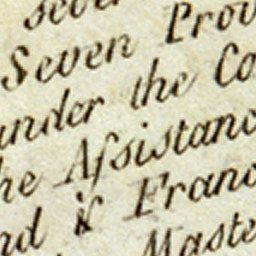 Seven Prov
under the Co
he Aſsistanc
nd is Franc
Maste